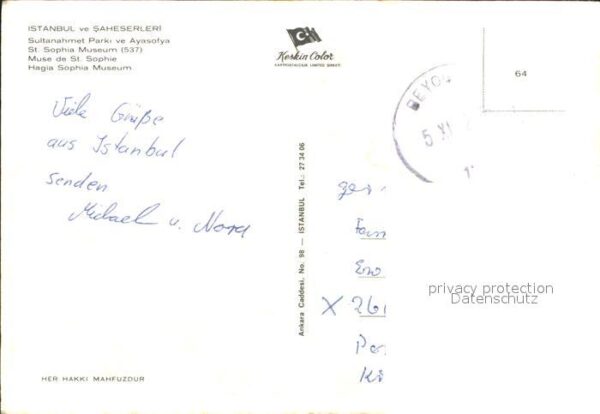 İSTANBUL ve ŞAHESERLERİ
Sultanahmet Parkı ve Ayasofya
St. Sophia Museum (537)
Muse de St. Sophie
Hagia Sophia Museum
Keskin Color
KARTPOSTALCILIK LIMITED ŞİRKETİ
64
BEYOĞ
5 XI
Viele Grüße
aus Istanbul
senden
Michael u. Nora
Ankara Caddesi, No. 98 — İSTANBUL Tel.: 27 34 06
Fam
X 261
privacy protection
Datenschutz
HER HAKKI MAHFUZDUR